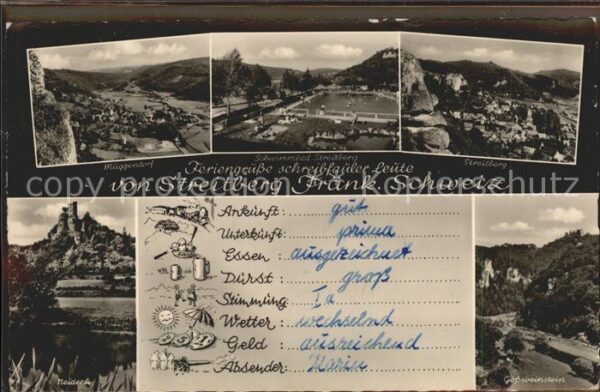 Muggendorf
Schwimmbad Streitberg
Streitberg
Feriengrüße schreibfauler Leute
von Streitberg Fränk. Schweiz
Copyright
oldthing.de
Copyright-Schutz
Ankunft: gut
Unterkunft: prima
Essen: ausgezeichnet
Durst: groß
Stimmung: Ia
Wetter: wechselnd
Geld: ausreichend
Absender:
Neideck
Gößweinstein